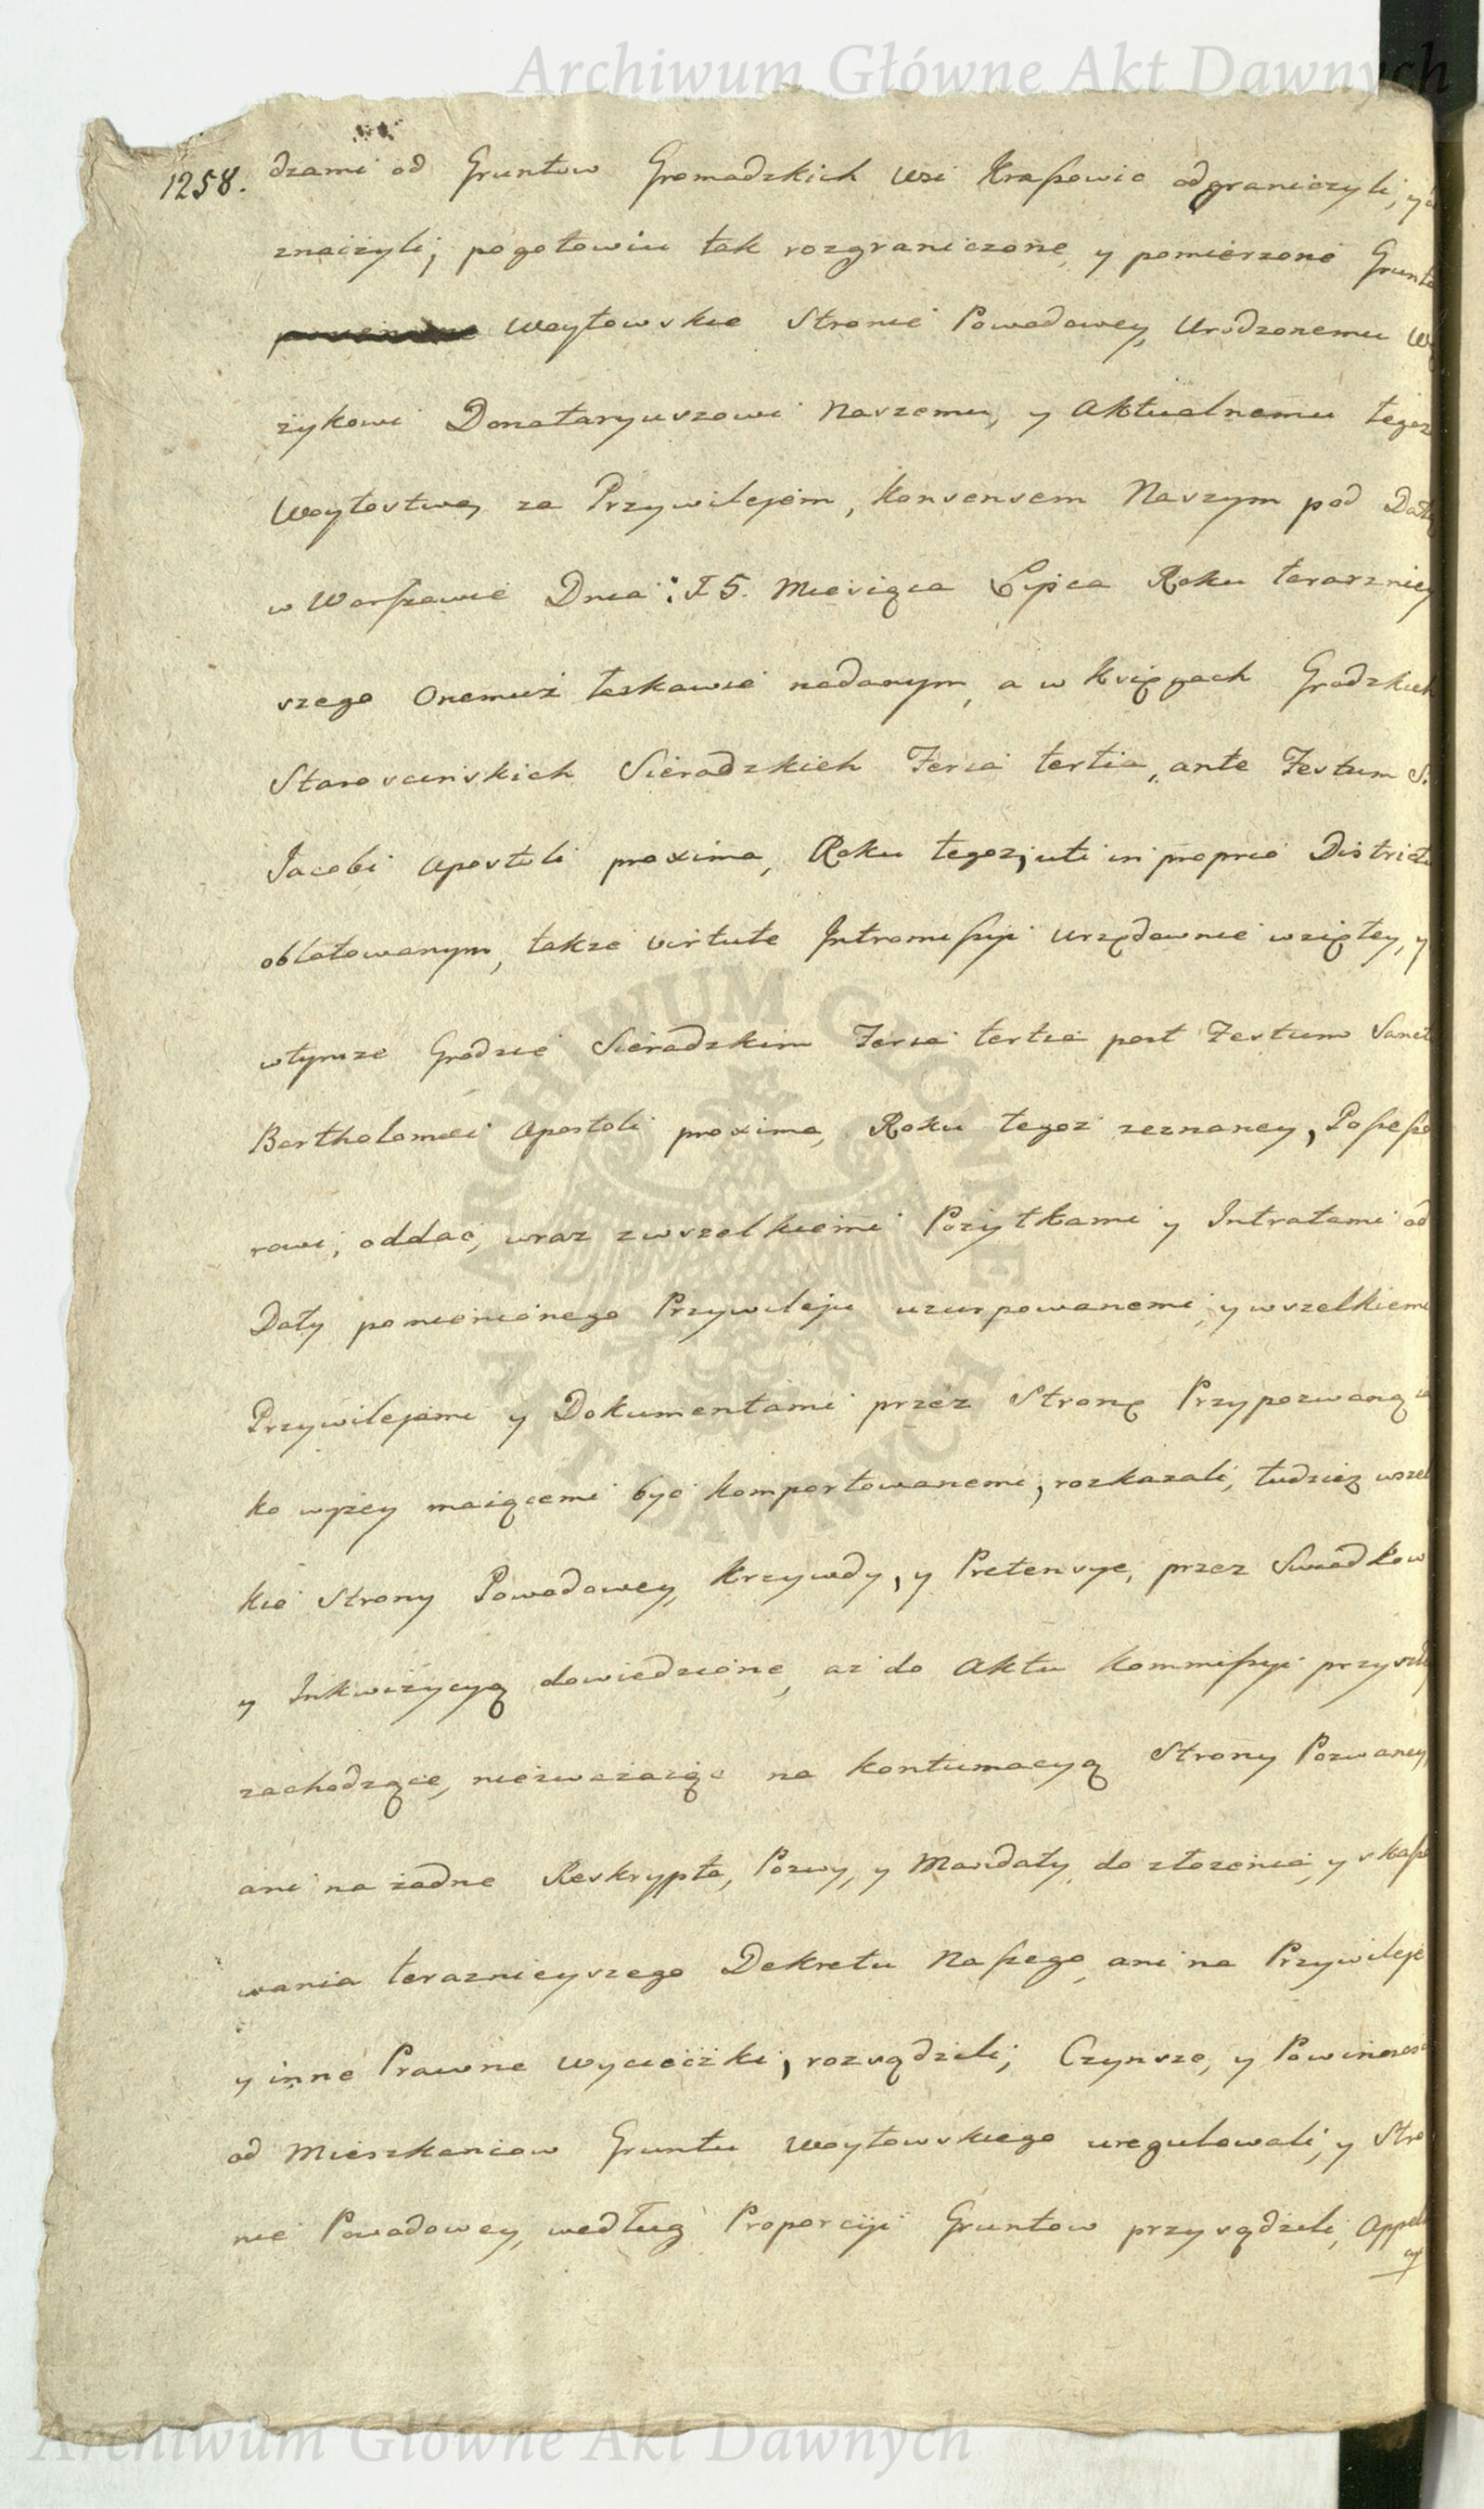 Archiwum Główne Akt Dawnych
1258. dzami od Gruntow Gromadzkich wsi Kraszowic odgraniczyli, y
znaczyli; pogotowiu tak rozgraniczone, y pomierzone Grunta
Woytowskie Stronie Powodowey, Urodzonemu
zykowi Donataryuszowi Naszemu, y Aktualnemu tegoz
Woytostwa, za Przywilejem, Konsensem Naszym pod Datą
w Warszawie Dnia: 15. Miesiąca Lipca Roku terazniey
szego Onemuż łaskawie nadanym, a w Księgach Grodzkich
Staroscinskich Sieradzkich Feria tertia, ante Festum S.
Jacobi Apostoli proxima, Roku tegoz, uti in proprio Districtu
oblatowanym, takze virtute Intromissyi urzędownie wziętey, y
wtymze Grodzie Sieradzkim Feria tertia post Festum Sancti
Bartholomei Apostoli proxima, Roku tegoz zeznaney, Possesso
rowi, oddać, wraz zwszelkiemi Pożytkami y Intratami od
Daty pomienionego Przywileju uzurpowanemi, y wszelkiemi
Przywilejami y Dokumentami przez Stronę Przypozwaną ia
ko wyżey maiącemi być komportowanemi, rozkazali, tudziez wszel
kie Strony Powodowey, krzywdy, y Pretensye, przez Swiadkow
y Inkwizycyą dowiedzione, az do Aktu Kommissyi przyszłey
zachodzące, niezwazaiąc na kontumacyą Strony Pozwaney,
ani na żadne Reskrypta, Pozwy, y Mandaty, do złozenia, y skasso
wania teraznieyszego Dekretu Naszego, ani na Przywileje
y inne Prawne wycieczki, rozsądzili; Czynsze, y Powinnosci
od Mieszkancow Gruntu Woytowskiego uregulowali, y Stro
nie Powodowey, według Proporcyi Gruntow przysądzili, Appella
cyi
Archiwum Główne Akt Dawnych
ARCHIWUM GŁÓWNE AKT DAWNYCH